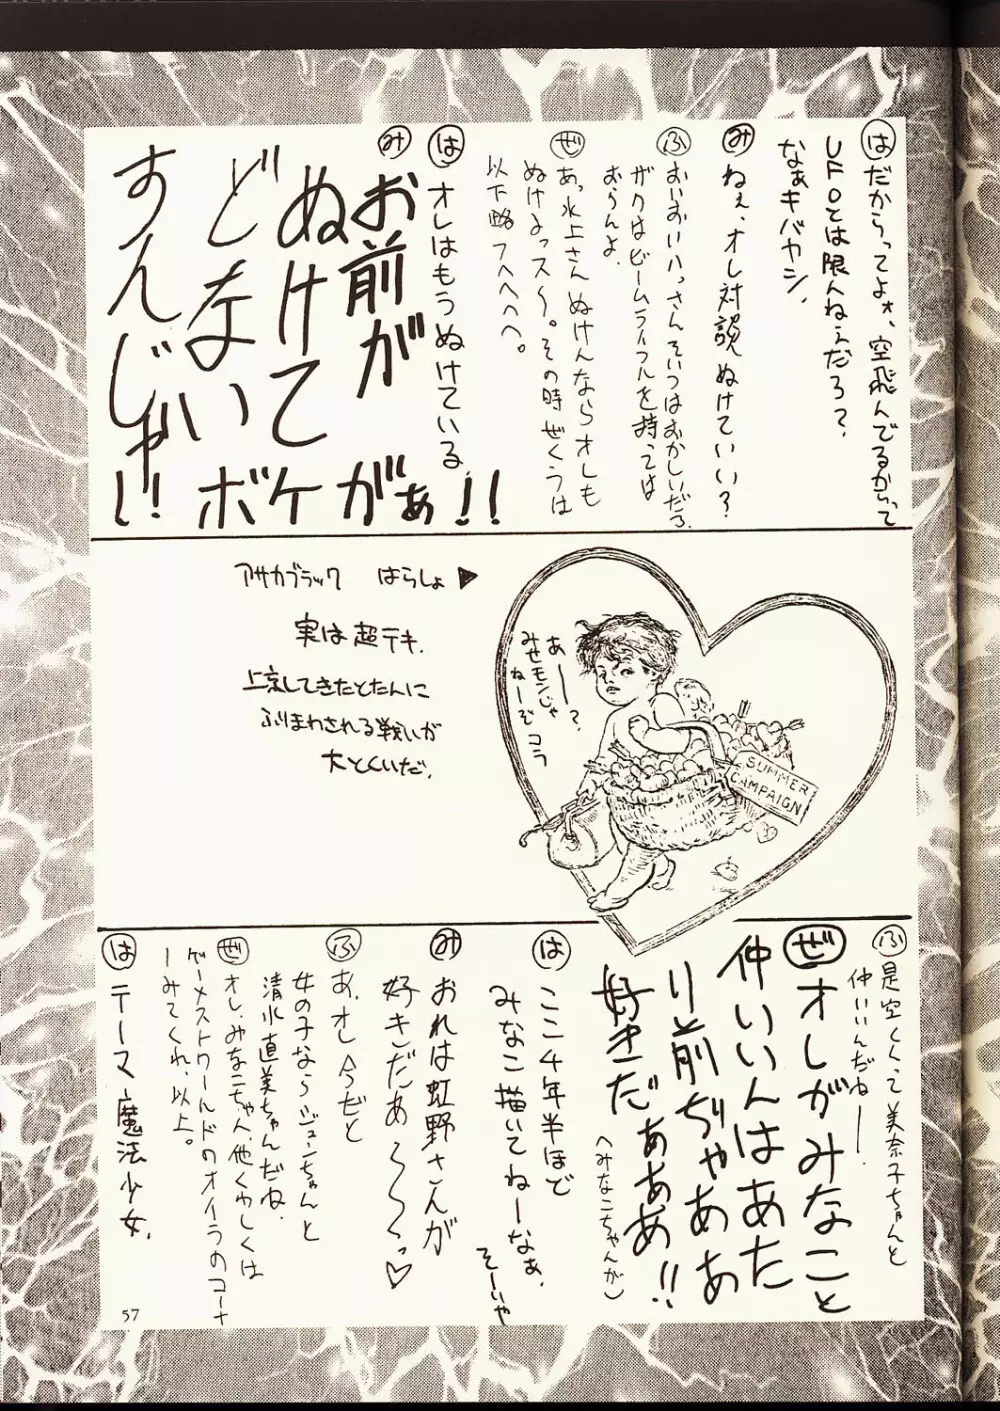 は だからってよォ、空飛んでるからって
UFOとは限んねぇだろ?、
なぁキバヤシ、
み ねぇ、オレ対談ぬけていい?
ふ おいおいハっさんそいつはおかしいだろ
ザクはビームライフルを持っては
おらんよ。
ぜ あっ、水上さんぬけんならオレも
ぬけるっス〜。その時ぜくうは
以下略フヘヘヘヘ。
は オレはもうぬけている。
み お前が
ぬけて
どないすんじゃい!
ボケがぁ!!
アサカブラック はらしょ▶
実は超テキ。
上京してきたとたんに
ふりまわされる戦いが
大とくいだ。
あー?
みせモンじゃ
ねーぞコラ
SUMMER
CAMPAIGN
ふ 是空くんって美奈子ちゃんと
仲いいんだねー。
ぜ オレがみなこと
仲いいんはあた
り前ぢゃああ
好きだぁぁぁ!!
(みなこちゃんが)
は ここ4年半ほど
みなこ描いてねーなぁ、
そーいや
み おれは虹野さんが
好きだあ〜〜〜っ♡
ふ あ、オレ今だと
女の子ならジューンちゃんと
清水直美ちゃんだね、
ぜ オレ、みなこちゃん、他くわしくは
ゲーメストワールドのオイラのコーナ
ーみてくれ、以上。
は テーマ魔法少女、
57